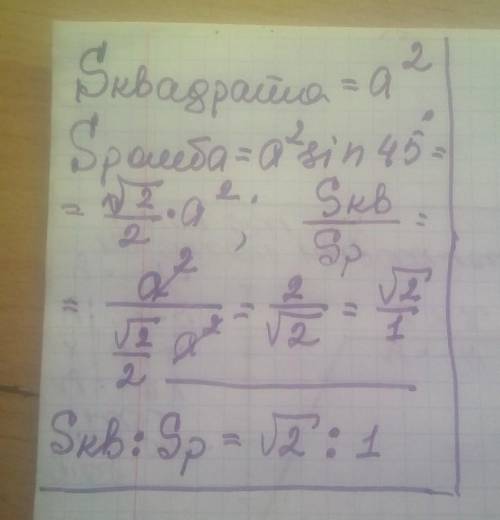 Sквадрата = a²
Sромба = a² sin 45° =
= √2/2 · a²; Sкв/Sр =
= a²/(√2/2 a²) = 2/√2 = √2/1
Sкв : Sр = √2 : 1